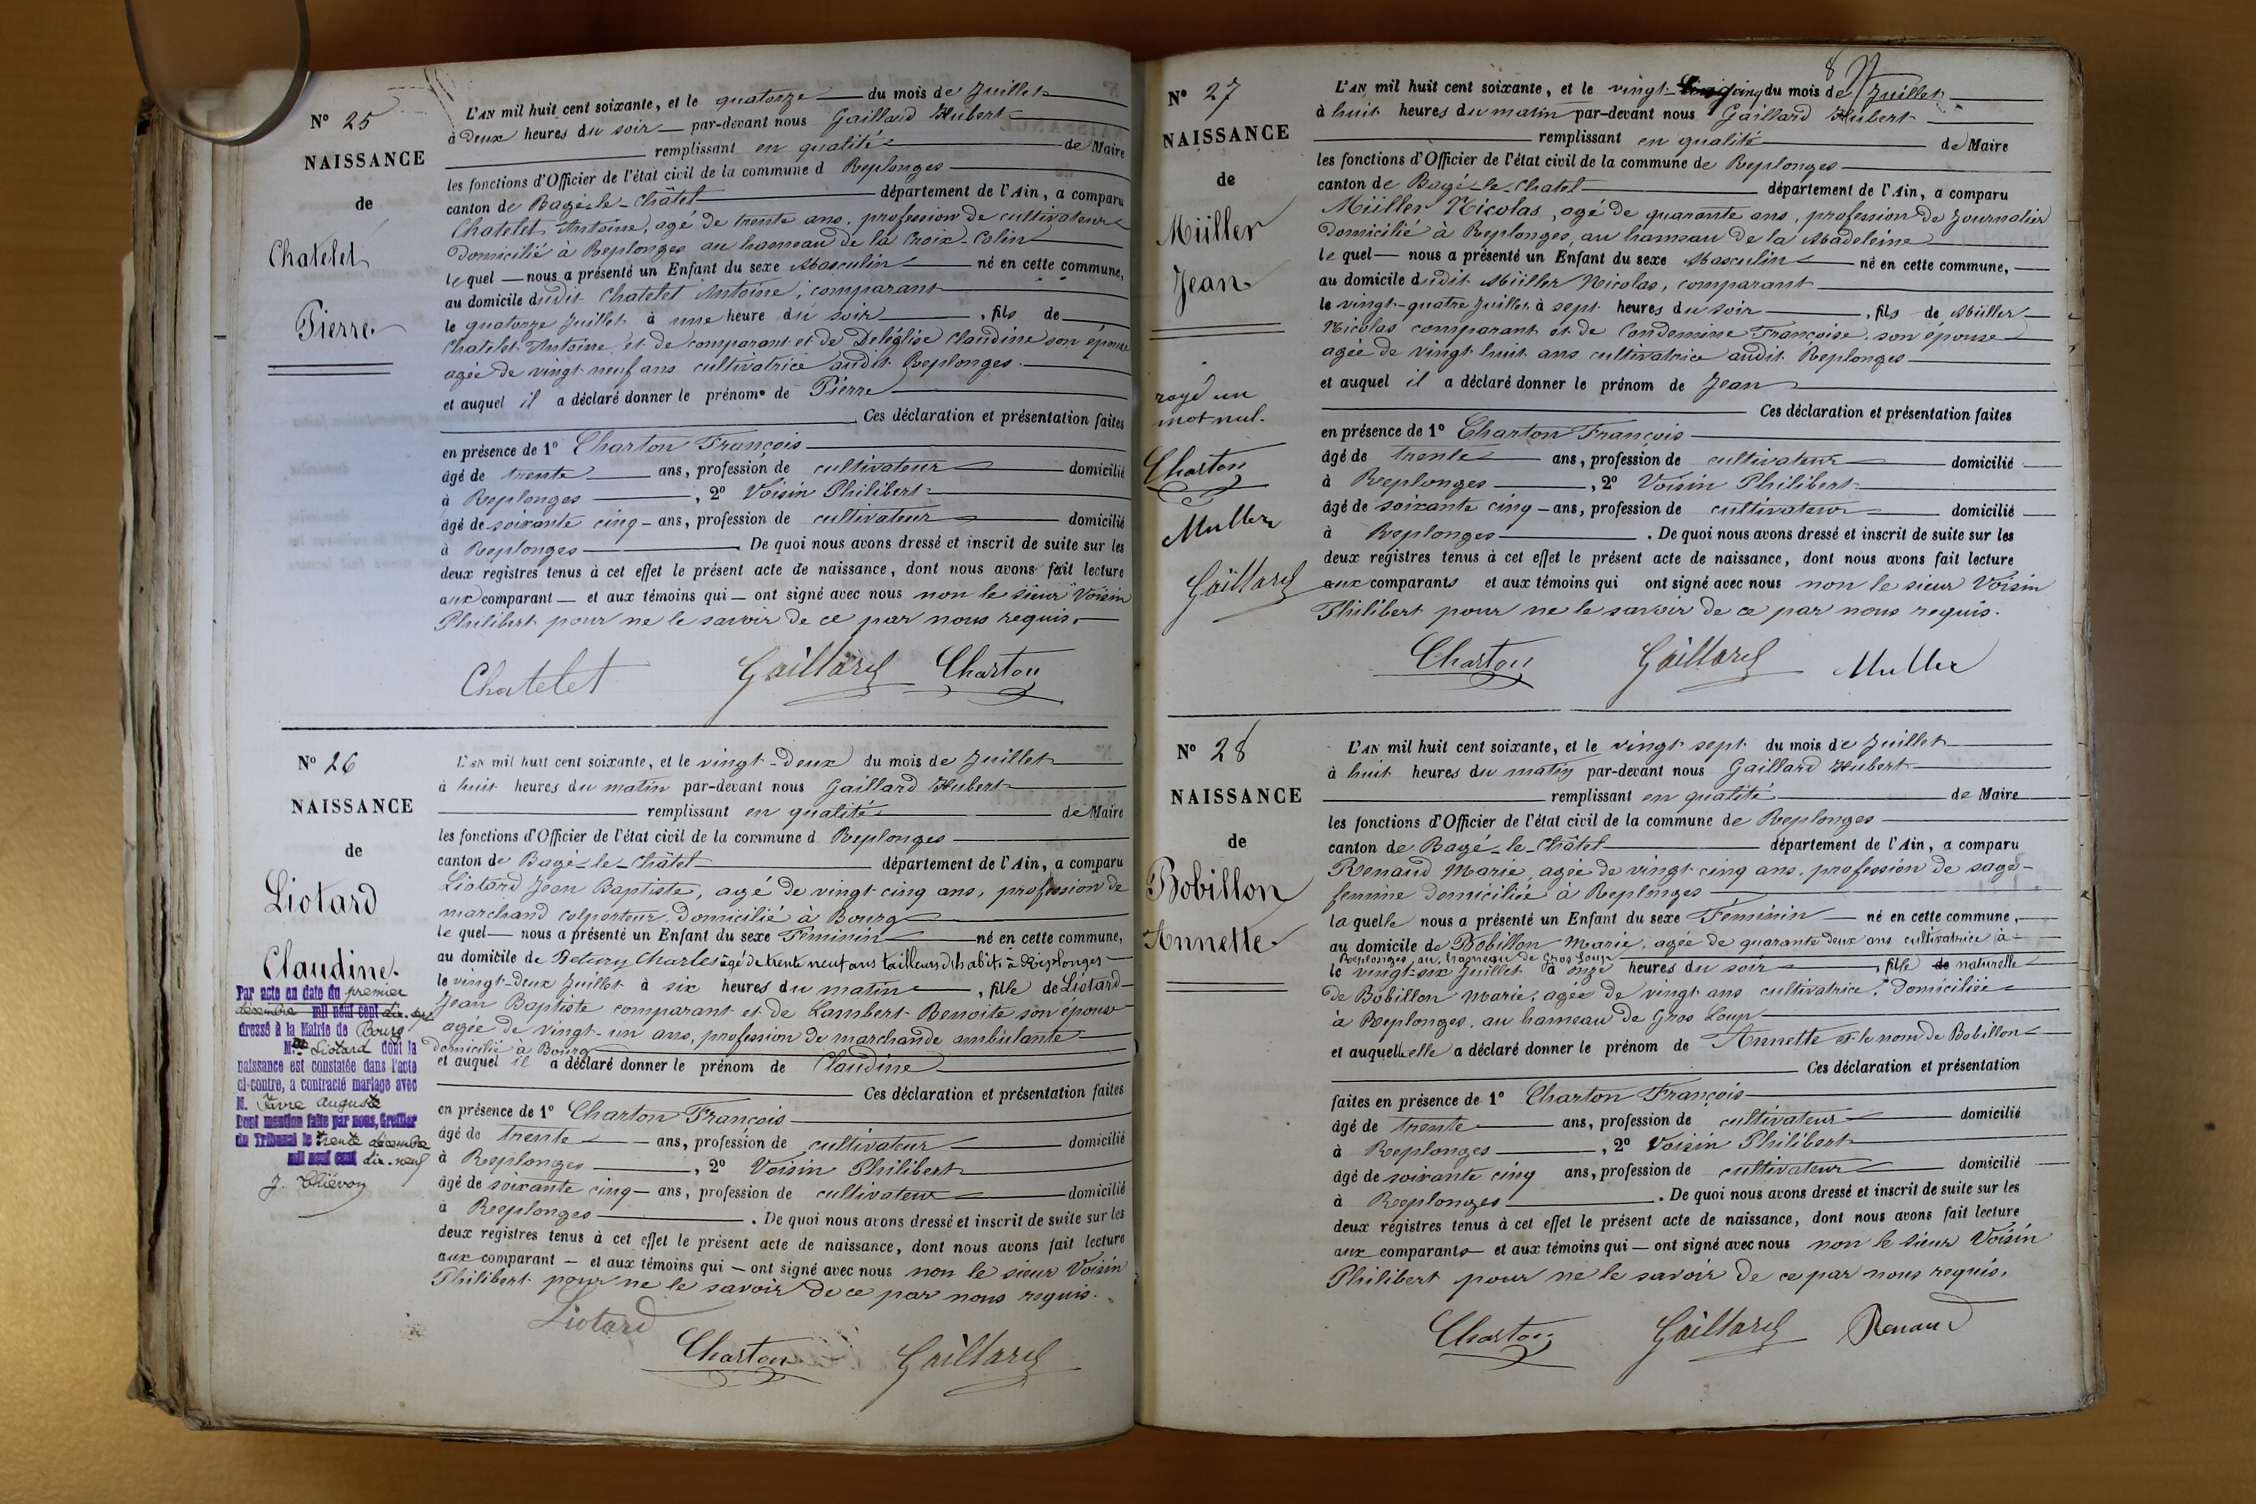 N° 25
NAISSANCE
de
Chatelet
Pierre
L'AN mil huit cent soixante, et le quatorze du mois de Juillet
à deux heures du soir par-devant nous Gaillard Hubert
remplissant en qualité de Maire
les fonctions d'Officier de l'état civil de la commune d Replonges
canton de Bagé-le-Châtel département de l'Ain, a comparu
Chatelet Antoine, agé de trente ans, profession de cultivateur
domicilié à Replonges au hameau de la Croix-Colin
le quel nous a présenté un Enfant du sexe Masculin né en cette commune,
au domicile dudit Chatelet Antoine, comparant
le quatorze Juillet à une heure du soir, fils de
Chatelet Antoine et de comparant et de Deléglise Claudine son épouse
agée de vingt neuf ans cultivatrice audit Replonges.
et auquel il a déclaré donner le prénom de Pierre
Ces déclaration et présentation faites
en présence de 1° Charton François
âgé de trente ans, profession de cultivateur domicilié
à Replonges, 2° Voisin Philibert
âgé de soixante cinq ans, profession de cultivateur domicilié
à Replonges. De quoi nous avons dressé et inscrit de suite sur les
deux registres tenus à cet effet le présent acte de naissance, dont nous avons fait lecture
aux comparant et aux témoins qui ont signé avec nous non le sieur Voisin
Philibert pour ne le savoir de ce par nous requis.
Chatelet Gaillard Charton
N° 26
NAISSANCE
de
Liotard
Claudine.
Par acte en date du premier
décembre mil neuf cent dix-neuf
dressé à la Mairie de Bourg
Mlle Liotard dont la
naissance est constatée dans l'acte
ci-contre, a contracté mariage avec
M. Favre Auguste
Dont mention faite par nous, Greffier
du Tribunal le trente décembre
mil neuf cent dix-neuf
L'AN mil huit cent soixante, et le vingt-deux du mois de Juillet
à huit heures du matin par-devant nous Gaillard Hubert
remplissant en qualité de Maire
les fonctions d'Officier de l'état civil de la commune d Replonges
canton de Bagé-le-Châtel département de l'Ain, a comparu
Liotard Jean Baptiste, agé de vingt cinq ans, profession de
marchand colporteur domicilié à Bourg
le quel nous a présenté un Enfant du sexe Féminin né en cette commune,
au domicile de Charles agé de trente neuf ans tailleur d'habits à Replonges
le vingt-deux Juillet à six heures du matin, fille de Liotard
Jean Baptiste comparant et de Lambert Benoite son épouse
agée de vingt-un ans, profession de marchande ambulante
domicilié à Bourg
et auquel il a déclaré donner le prénom de Claudine
Ces déclaration et présentation faites
en présence de 1° Charton François
âgé de trente ans, profession de cultivateur domicilié
à Replonges, 2° Voisin Philibert
âgé de soixante cinq ans, profession de cultivateur domicilié
à Replonges. De quoi nous avons dressé et inscrit de suite sur les
deux registres tenus à cet effet le présent acte de naissance, dont nous avons fait lecture
aux comparant et aux témoins qui ont signé avec nous non le sieur Voisin
Philibert pour ne le savoir de ce par nous requis.
Liotard
Charton Gaillard
8
N° 27
NAISSANCE
de
Müller
Jean
rayé un
mot nul.
Charton
Muller
Gaillard
L'AN mil huit cent soixante, et le vingt-cinq du mois de Juillet
à huit heures du matin par-devant nous Gaillard Hubert
remplissant en qualité de Maire
les fonctions d'Officier de l'état civil de la commune de Replonges
canton de Bagé-le-Chatel département de l'Ain, a comparu
Müller Nicolas, agé de quarante ans, profession de Journalier
domicilié à Replonges, au hameau de la Madeleine
le quel nous a présenté un Enfant du sexe Masculin né en cette commune,
au domicile dudit Müller Nicolas, comparant
le vingt-quatre Juillet à sept heures du soir, fils de Müller
Nicolas comparant et de Condemine Françoise son épouse
agée de vingt huit ans cultivatrice audit Replonges
et auquel il a déclaré donner le prénom de Jean
Ces déclaration et présentation faites
en présence de 1° Charton François
âgé de trente ans, profession de cultivateur domicilié
à Replonges, 2° Voisin Philibert
âgé de soixante cinq ans, profession de cultivateur domicilié
à Replonges. De quoi nous avons dressé et inscrit de suite sur les
deux registres tenus à cet effet le présent acte de naissance, dont nous avons fait lecture
aux comparants et aux témoins qui ont signé avec nous non le sieur Voisin
Philibert pour ne le savoir de ce par nous requis.
Charton Gaillard Muller
N° 28
NAISSANCE
de
Bobillon
Annette
L'AN mil huit cent soixante, et le vingt sept du mois de Juillet
à huit heures du matin par-devant nous Gaillard Hubert
remplissant en qualité de Maire
les fonctions d'Officier de l'état civil de la commune de Replonges
canton de Bagé-le-Châtel département de l'Ain, a comparu
Renaud Marie, agée de vingt cinq ans, profession de sage-
femme domiciliée à Replonges
la quelle nous a présenté un Enfant du sexe Féminin né en cette commune,
au domicile de Bobillon Marie, agée de quarante deux ans cultivatrice à
Replonges, au hameau de Gros Loup
le vingt-six Juillet à onze heures du soir, fille de naturelle
de Bobillon Marie, agée de vingt ans cultivatrice, domiciliée
à Replonges, au hameau de Gros Loup
et auquel elle a déclaré donner le prénom de Annette et le nom de Bobillon
Ces déclaration et présentation
faites en présence de 1° Charton François
âgé de trente ans, profession de cultivateur domicilié
à Replonges, 2° Voisin Philibert
âgé de soixante cinq ans, profession de cultivateur domicilié
à Replonges. De quoi nous avons dressé et inscrit de suite sur les
deux registres tenus à cet effet le présent acte de naissance, dont nous avons fait lecture
aux comparants et aux témoins qui ont signé avec nous non le Sieur Voisin
Philibert pour ne le savoir de ce par nous requis.
Charton Gaillard Renaud